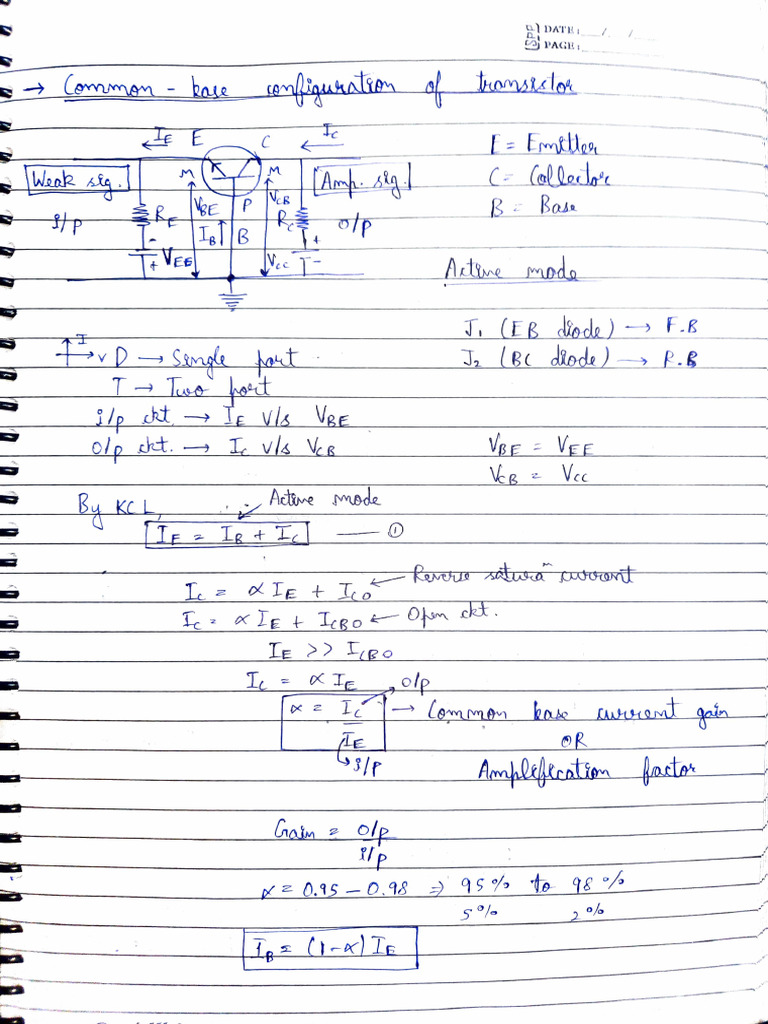 SPP DATE: / /
PAGE:
→ Common-base configuration of transistor
I_E E C I_C
Weak sig. M M Amp. sig.
E = Emitter
C = Collector
B = Base
i/p R_E V_BE P V_CB R_C o/p
I_B B
- V_EE + V_CC + -
Active mode
J₁ (EB diode) → F.B
J₂ (BC diode) → R.B
I V D → Single port
T → Two port
i/p ckt. → I_E V/s V_BE
o/p ckt. → I_C V/s V_CB
V_BE = V_EE
V_CB = V_CC
By KCL, Active mode
I_E = I_B + I_C — ①
I_C = αI_E + I_CO ← Reverse saturaⁿ current
I_C = αI_E + I_CBO ← Open ckt.
I_E >> I_CBO
I_C = αI_E
α = I_C / I_E → Common base current gain
o/p
i/p
OR
Amplification factor
Gain = o/p / i/p
α = 0.95 – 0.98 ⇒ 95% to 98%
5% 2%
I_B = (1-α) I_E